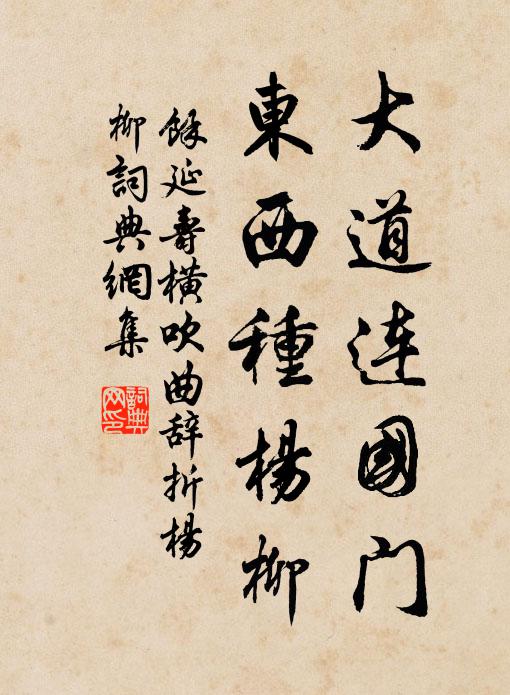 大道连國门
東西種楊柳
餘延壽橫吹曲辞折楊
柳詞典網集
詞典網印